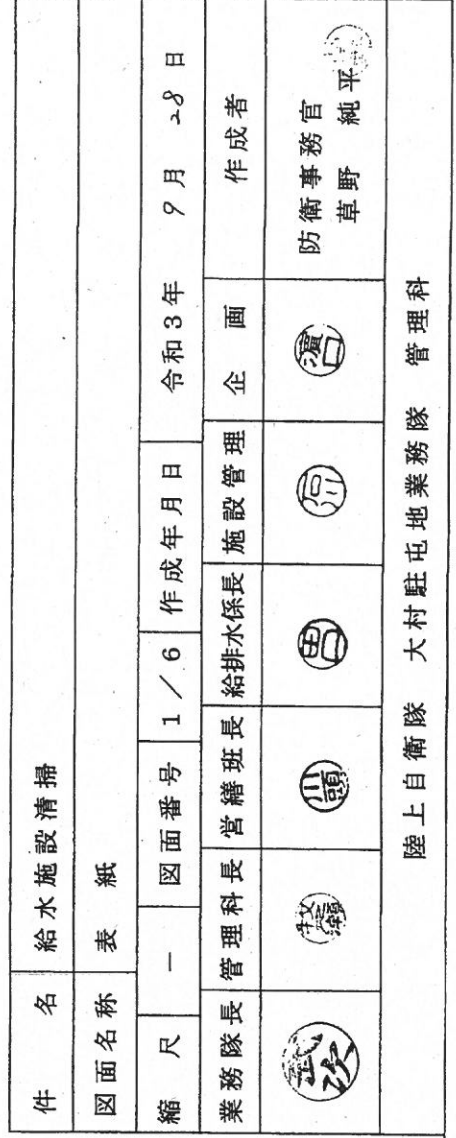 件名 給水施設清掃
図面名称 表紙
縮尺 － 図面番号 1／6 作成年月日 令和3年 9月 28日
業務隊長 管理科長 営繕班長 給排水係長 施設管理 企画 作成者
武次 牧瀬 川頭 濵口 防衛事務官
草野 純平
陸上自衛隊 大村駐屯地業務隊 管理科